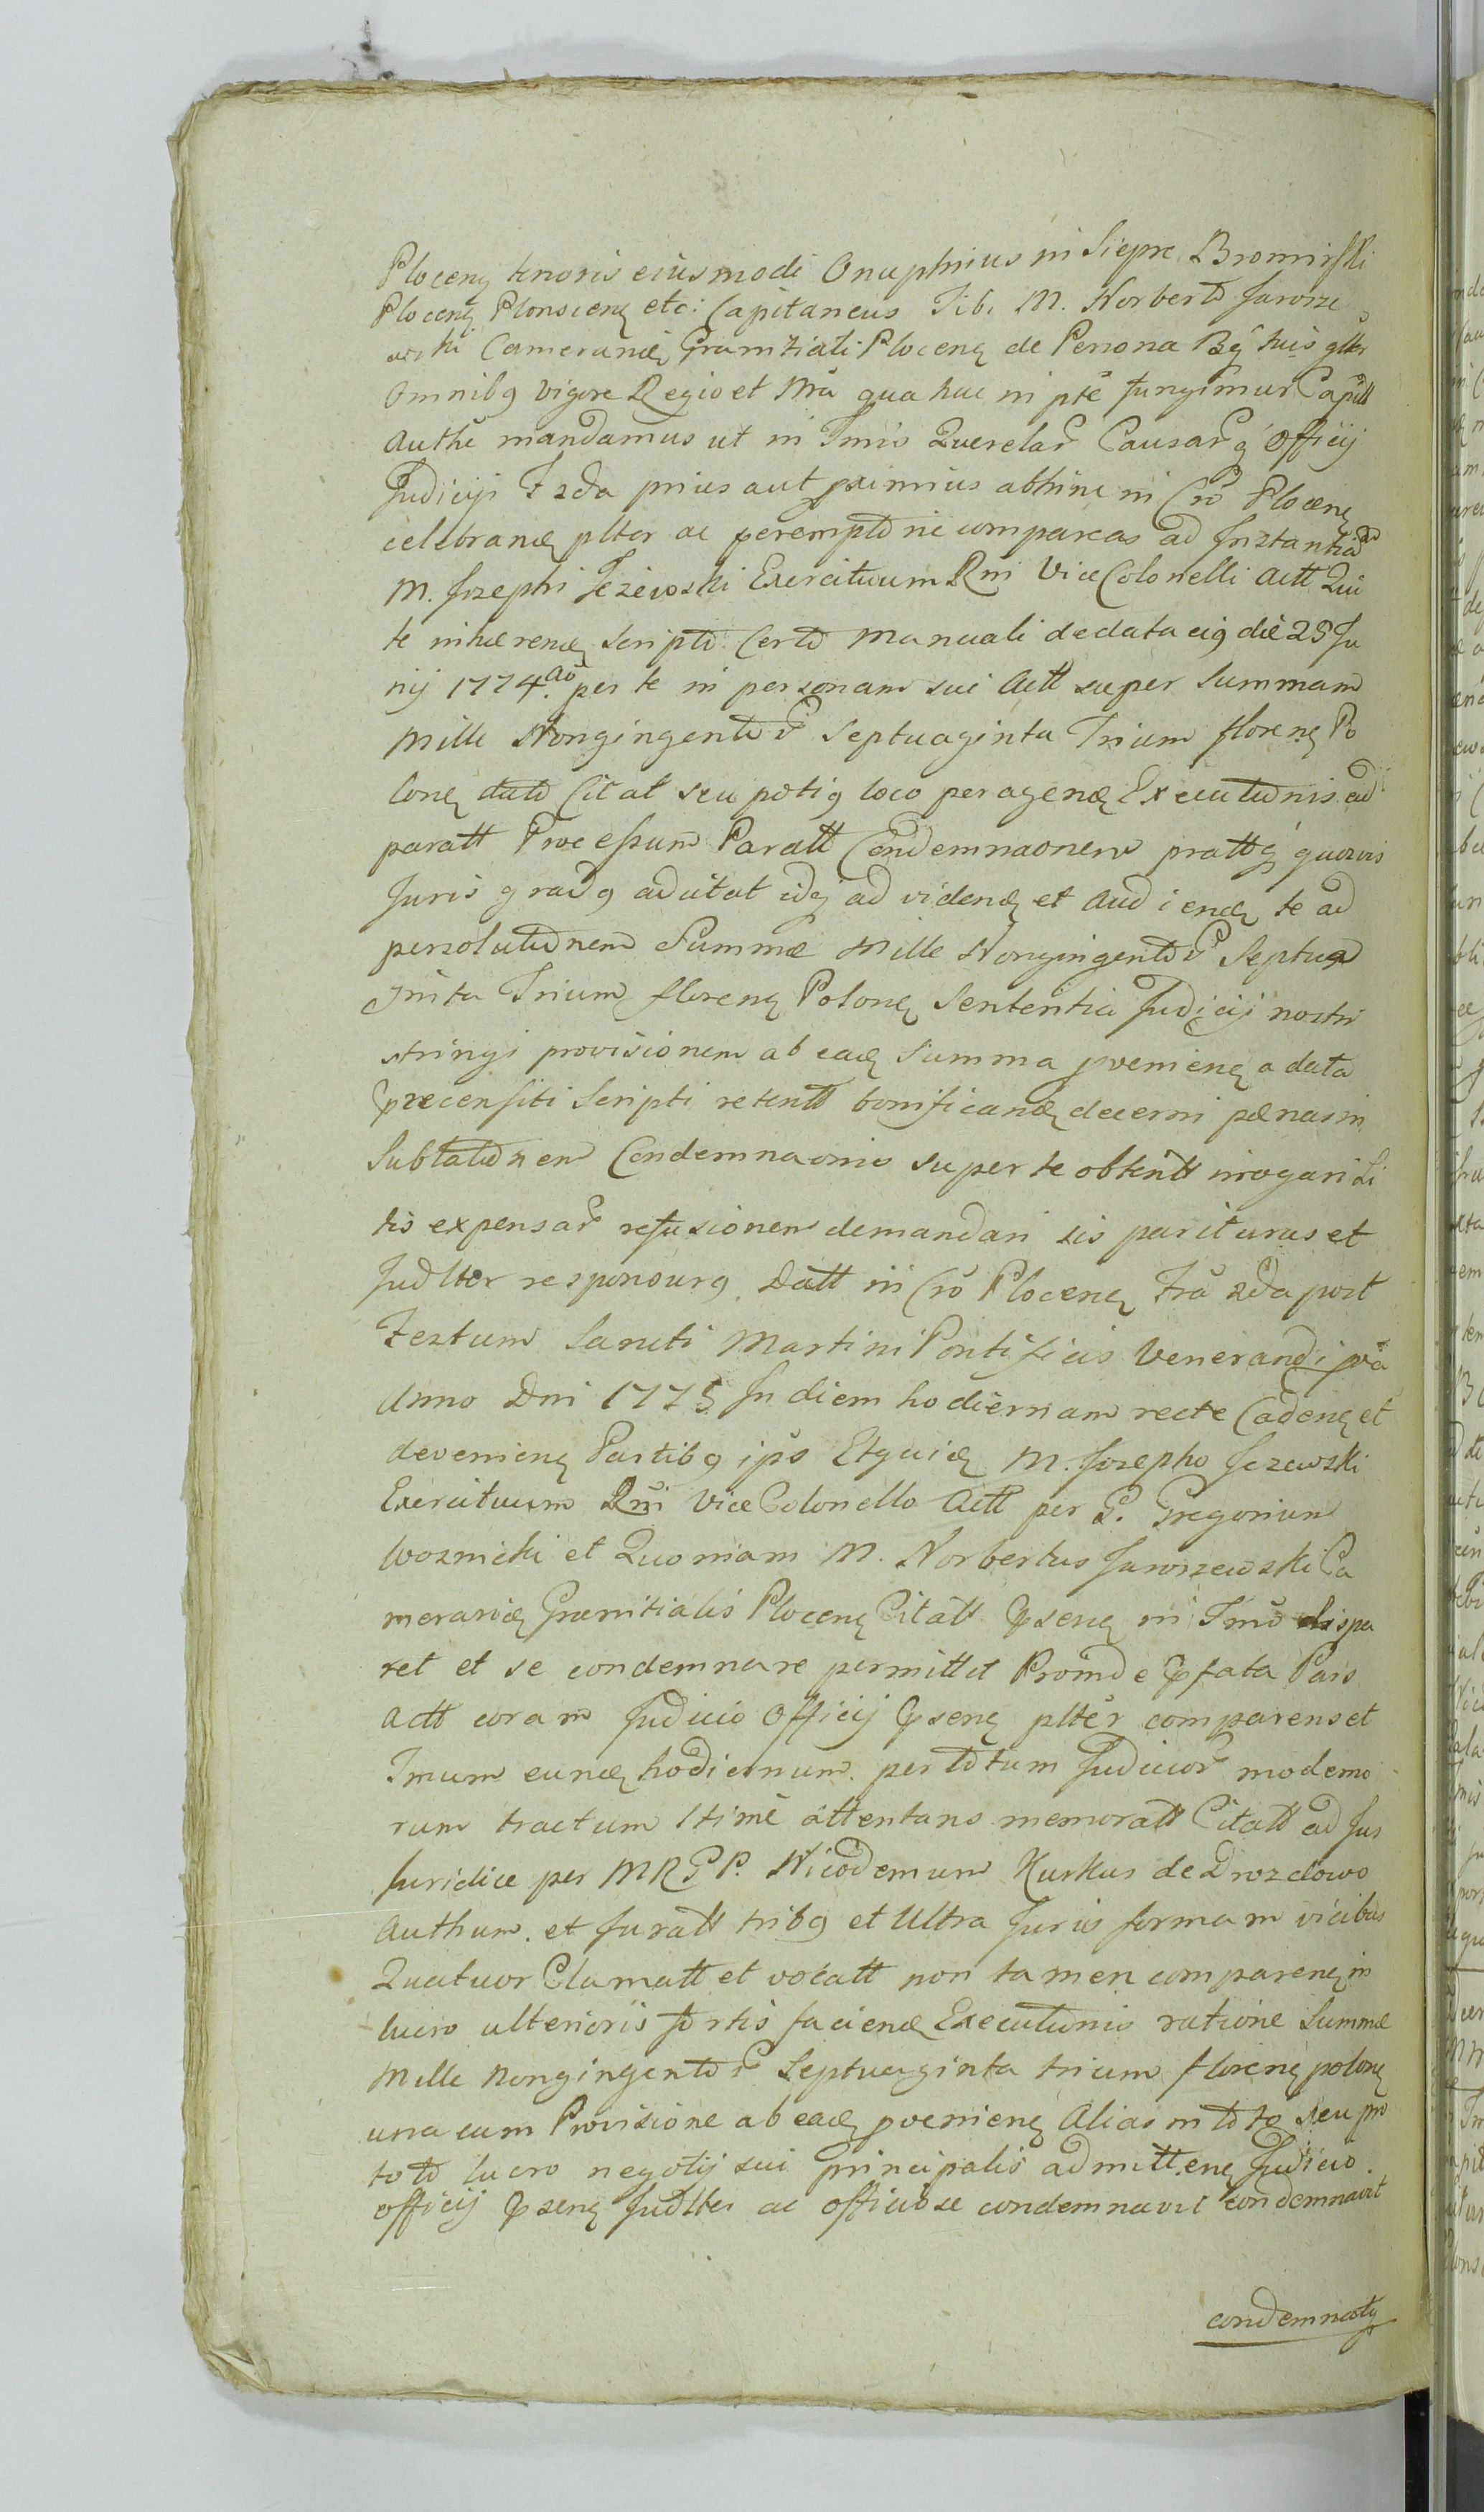 Plocen tenoris eiusmodi Onuphrius in Siepre Bromirski
Plocen Plonscen etc: Capitaneus Tibi M. Norberto Jarosze
wski Camerario Granitiali Plocen de Persona Bq suis glter
Omnibq vigore Regio et Nra qua hac in pte fungimur Capitt
Authe mandamus ut in Tmis Querelar Causarq Officij
Judicijs Fr 2da prius aut pximius abhinc in Cro Plocen
celebrand plter ac peremptorie compareas ad Instantiam
M. Josephi Jezewski Exercituum Rni Vice Colonelli Actt Qui
te inhaerend Scripto Certo Manuali de data eiq die 29 Ju
nij 1774 ao per te in personam sui Actt super Summam
Mille Nongingentor Septuaginta Trium floren Po
lon dato Citat seu potiq loco peragend Executionis ad
paratt Processum Paratt Condemnaonem prattq quosvis
Juris gradq adcitat idq ad vidend et audiend te ad
persolutionem Summae Mille Nongingentor Septua
ginta Trium floren Polon Sententia Judicij nostri
stringi provisionem ab ead Summa pvenien a data
praecensiti Scripti retentt bonificand decerni paenas in
Sublationem Condemnaonis super te obtentt irrogari Li
tis expensar refusionem demandari sis pariturus et
Judlter responsurq. Datt in Cro Plocen Fra 2da post
Festum Sancti Martini Pontificis Venerandi pxa
Anno Dni 1775 In diem hodiernam recte Caden et
devenien Partibq ips Etquid M. Josepho Jezewski
Exercituum Rni Vice Colonello Actt per G. Gregorium
Woznicki et Quoniam M. Norbertus Jaroszewski Ca
merariq Granitialis Plocen Citatt Psen in Tmo dispa
ret et se condemnare permittit Proinde Pfata Pars
actt coram Judicio Officij Psen plter comparens et
Tmum eund hodiernum per totum Judicior moderno
rum tractum ltime attentans memoratt Citatt ad Jus
Juridice per MRGP. Nicodemum Kurkus de Drozdowo
Authum. et Juratt tribq et Ultra Juris formam vicibus
Quatuor Clamatt et vocatt non tamen comparen in
lucro ulterioris fortis faciend Executionis ratione Summae
Mille Nongingentor Septuaginta trium floren polon
una cum Provisione ab ead pvenien Alias in toto seu pro
toto lucro negotij sui principalis admitten Judicio
officij Psen Judlter ac officiose condemnavit condemnavit
condemnatq